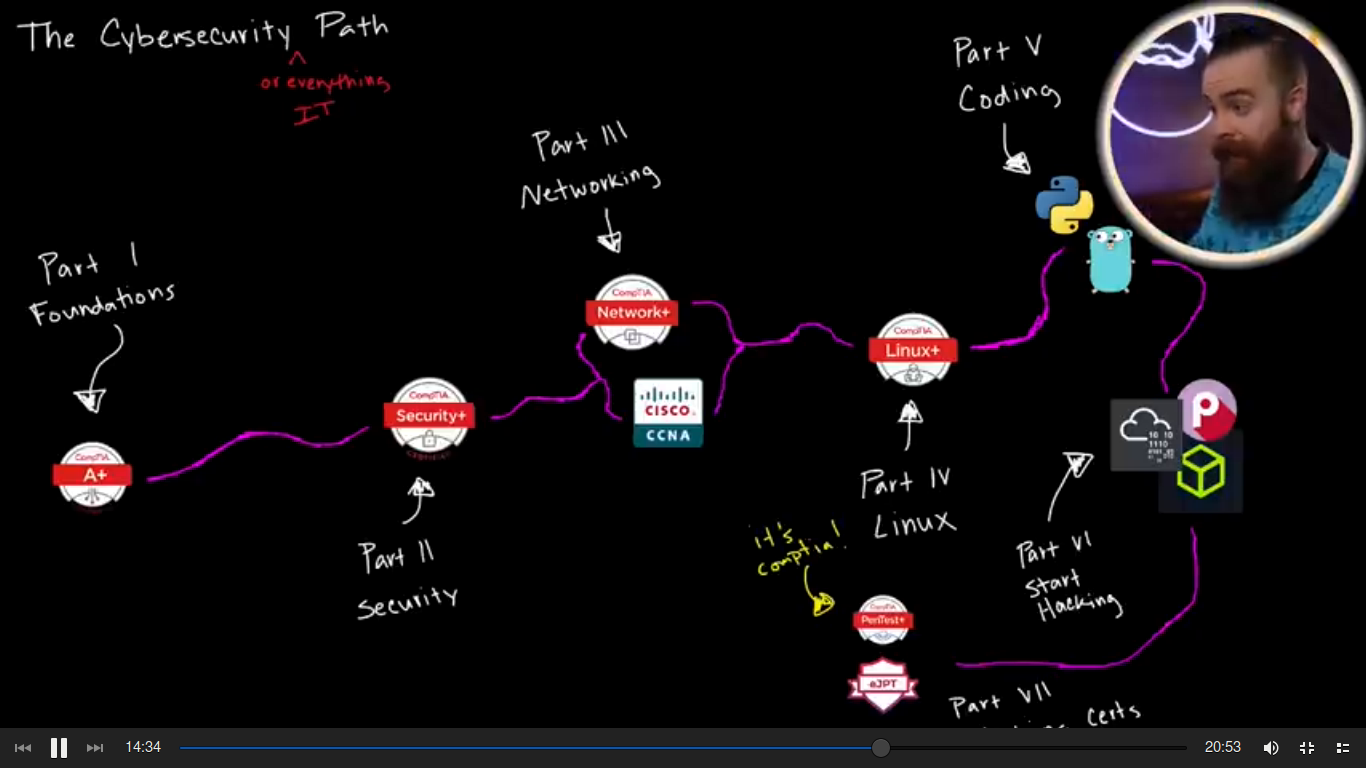 The Cybersecurity Path
^
or everything
IT
Part I
Foundations
CompTIA
A+
CompTIA
Security+
CERTIFIED
Part II
Security
Part III
Networking
CompTIA
Network+
CISCO
CCNA
CompTIA
Linux+
Part IV
Linux
Part V
Coding
P
10 10
1110
Part VI
Start
Hacking
it's
comptia!
CompTIA
PenTest+
eJPT
Part VII
certs
14:34
20:53